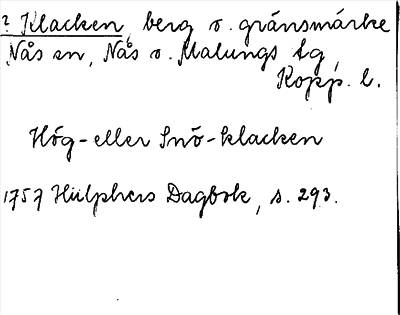 ? Klacken, berg o. gränsmärke
Nås sn, Nås o. Malungs tg,
Kopp. l.
Hög- eller Snö-klacken
1757 Hülphers Dagbok, s. 293.